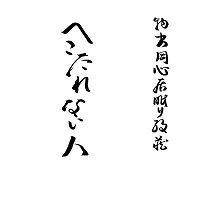 物書同心居眠り紋蔵
へこたれない人